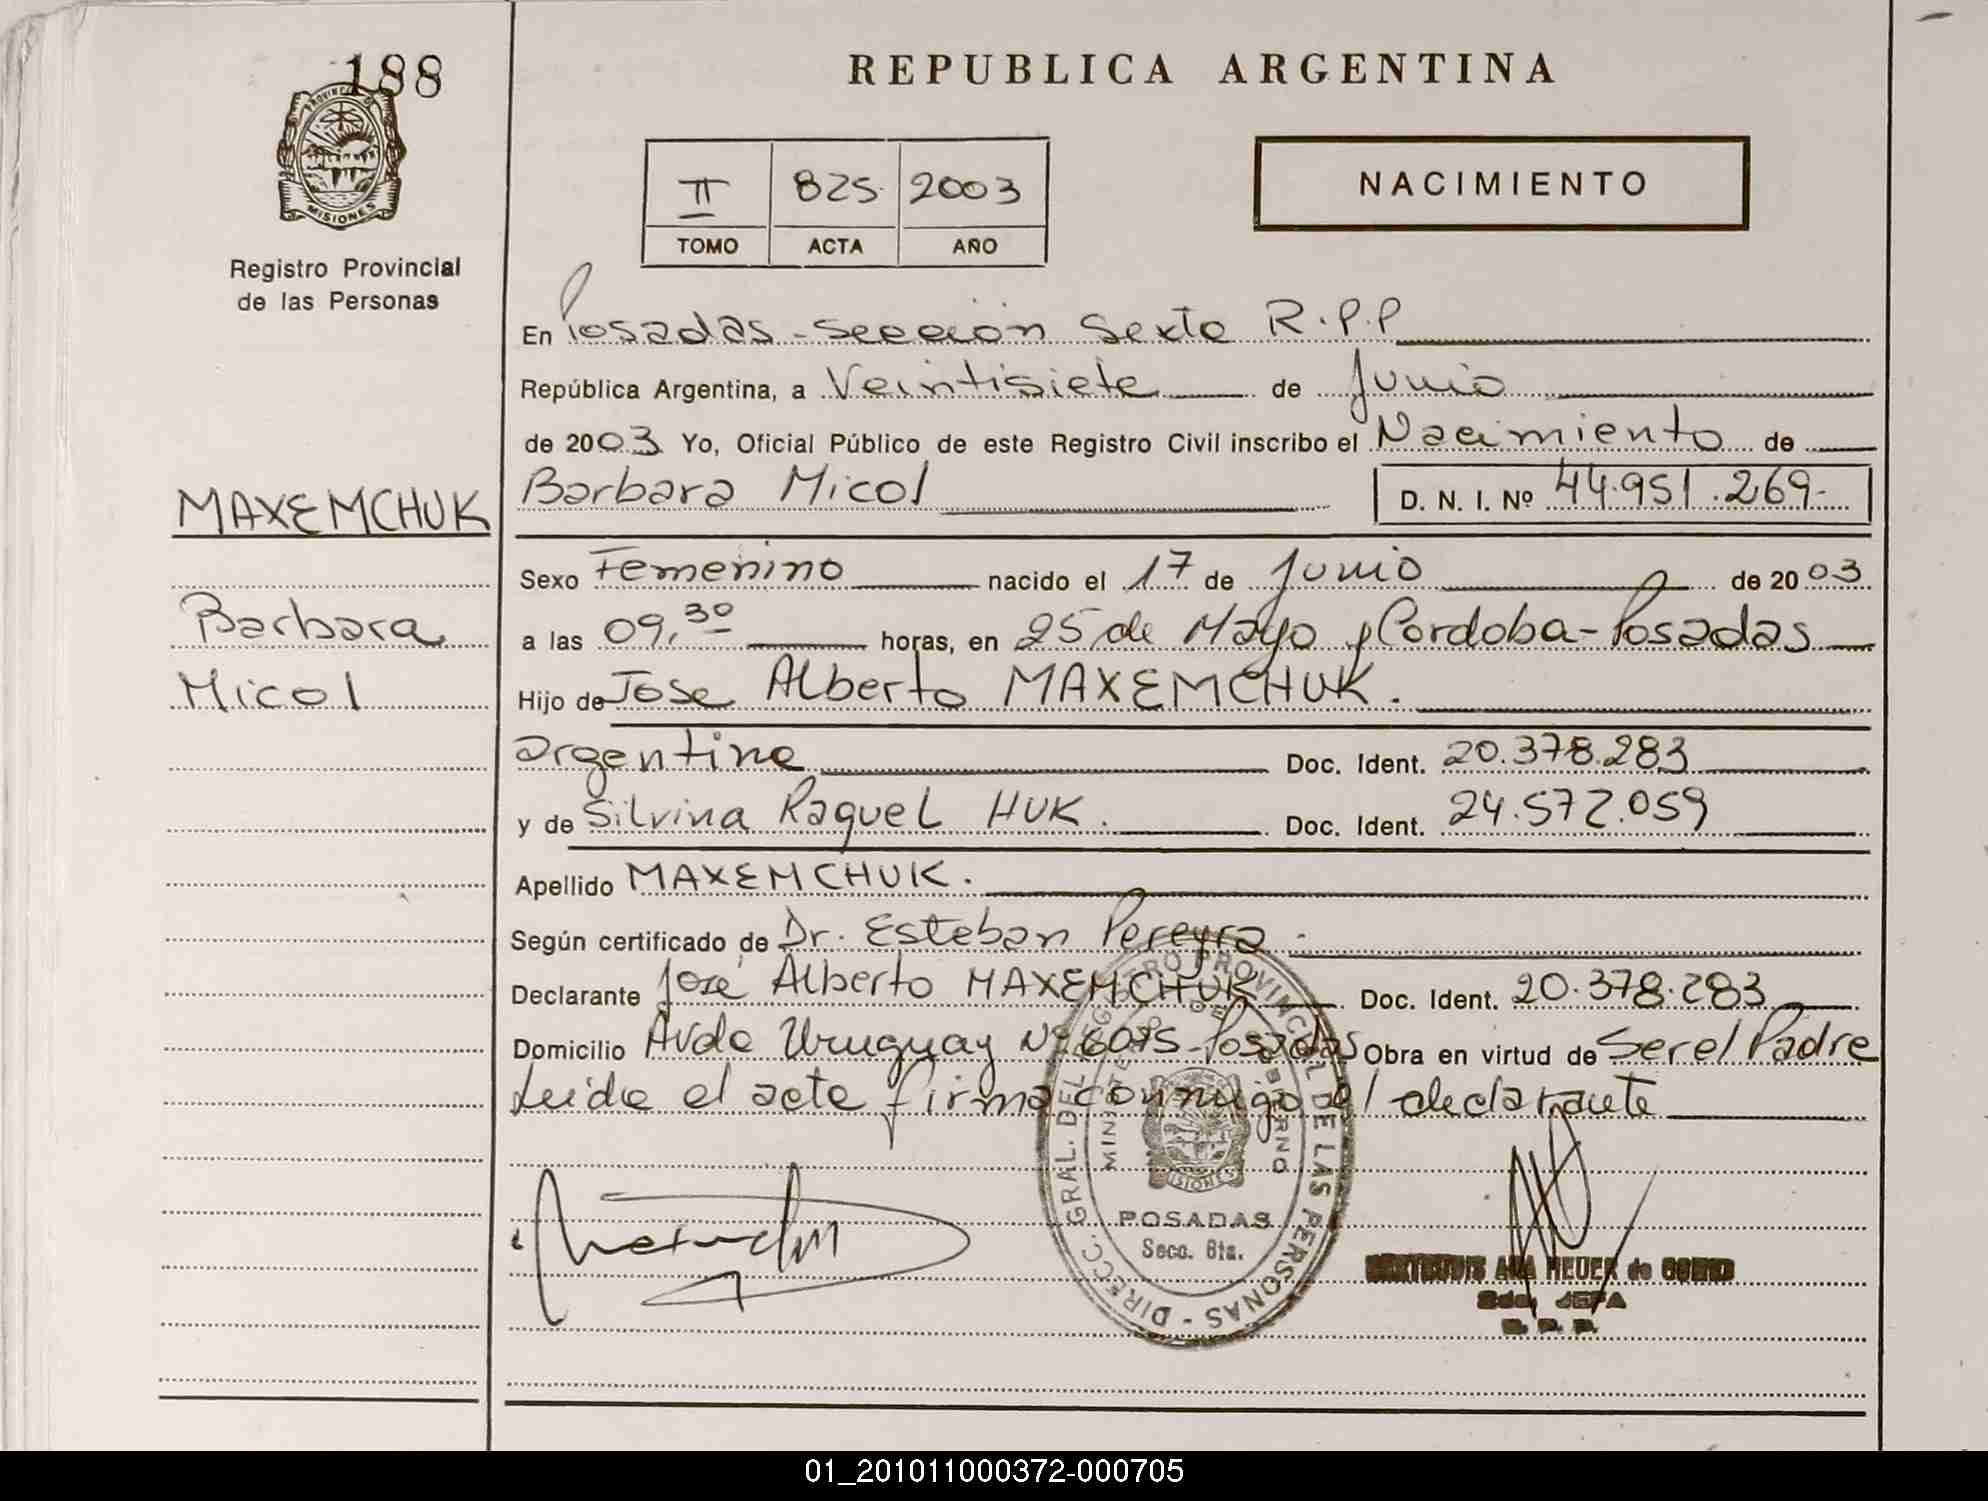 188
REPUBLICA ARGENTINA
PROVINCIA DE
MISIONES
Registro Provincial
de las Personas
II 825 2003
TOMO ACTA AÑO
NACIMIENTO
En Posadas - Sección Sexta R.P.P
República Argentina, a Veintisiete de Junio
de 2003 Yo, Oficial Público de este Registro Civil inscribo el Nacimiento de
MAXEMCHUK
Barbara Micol D. N. I. Nº 44.951.269-
Sexo Femenino nacido el 17 de Junio de 2003
Barbara
a las 09,30 horas, en 25 de Mayo y Cordoba - Posadas
Micol
Hijo de Jose Alberto MAXEMCHUK.
argentina Doc. Ident. 20.378.283
y de Silvina Raquel HUK. Doc. Ident. 24.572.059
Apellido MAXEMCHUK.
Según certificado de Dr. Esteban Pereyra -
Declarante José Alberto MAXEMCHUK Doc. Ident. 20.378.283
Domicilio Avda Uruguay Nº 6075 - Posadas Obra en virtud de Ser el Padre
Leida el acta firma conmigo el declarante
DIRECC. GRAL. DEL REGISTRO PROVINCIAL DE LAS PERSONAS -
MINISTERIO DE GOBIERNO
MISIONES
POSADAS
Secc. 6ta.
ANA de
JEFA
01_201011000372-000705